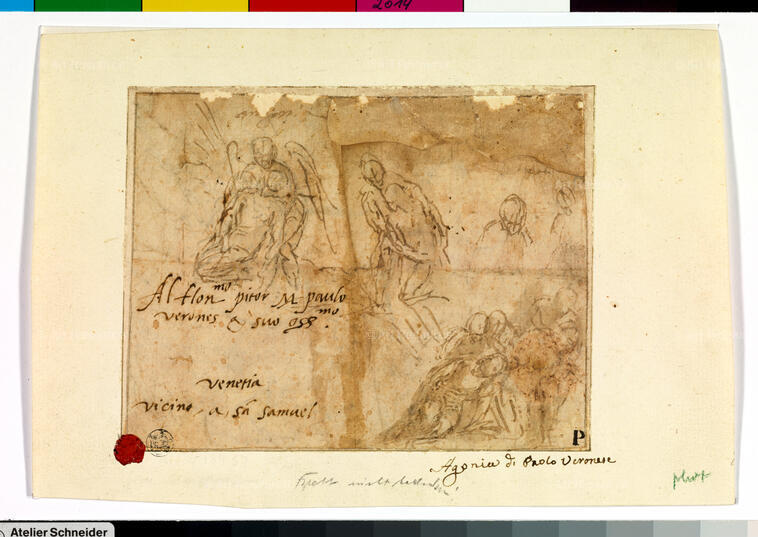 2014
Al Hon^mo pitor M paulo
verones & suo oss^mo.
venetia
vicino, a, sã samuel
P
Agonia di Paolo Veronese
Atelier Schneider